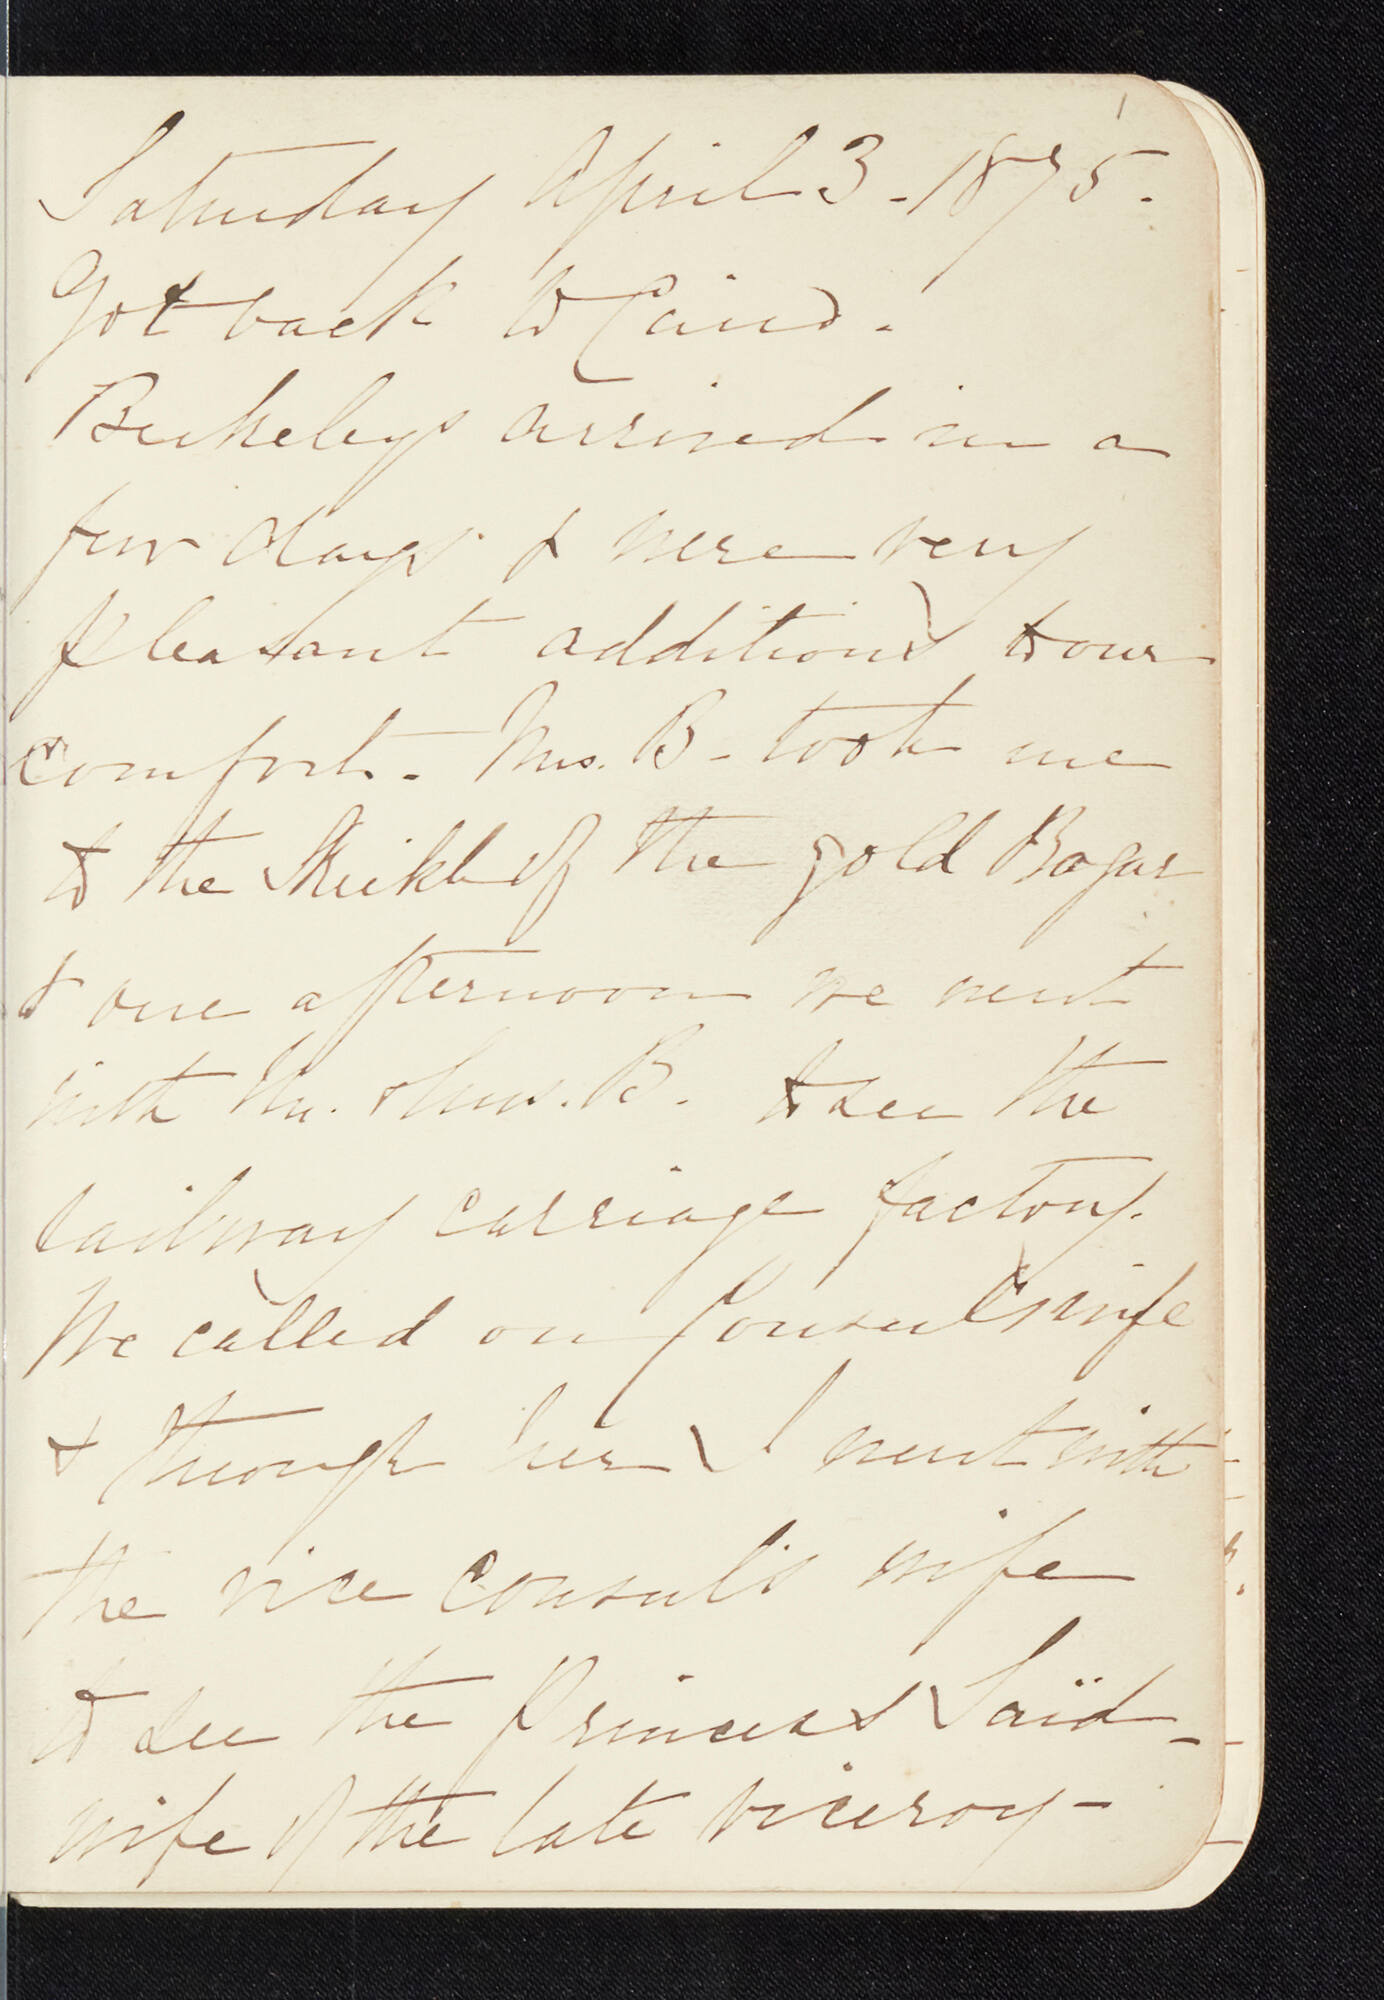 Saturday April 3. 1875.
Got back to Cairo.
Berkeleys arrived in a
few days & were very
pleasant additions to our
comfort. Mrs. B. took me
to the Sheikh of the gold Bazar
& one afternoon we went
with Mr. & Mrs. B. to see the
railway carriage factory.
We called on Consul's wife
& through her I went with
the vice consul's wife
to see the Princess Saïd -
wife of the late viceroy -